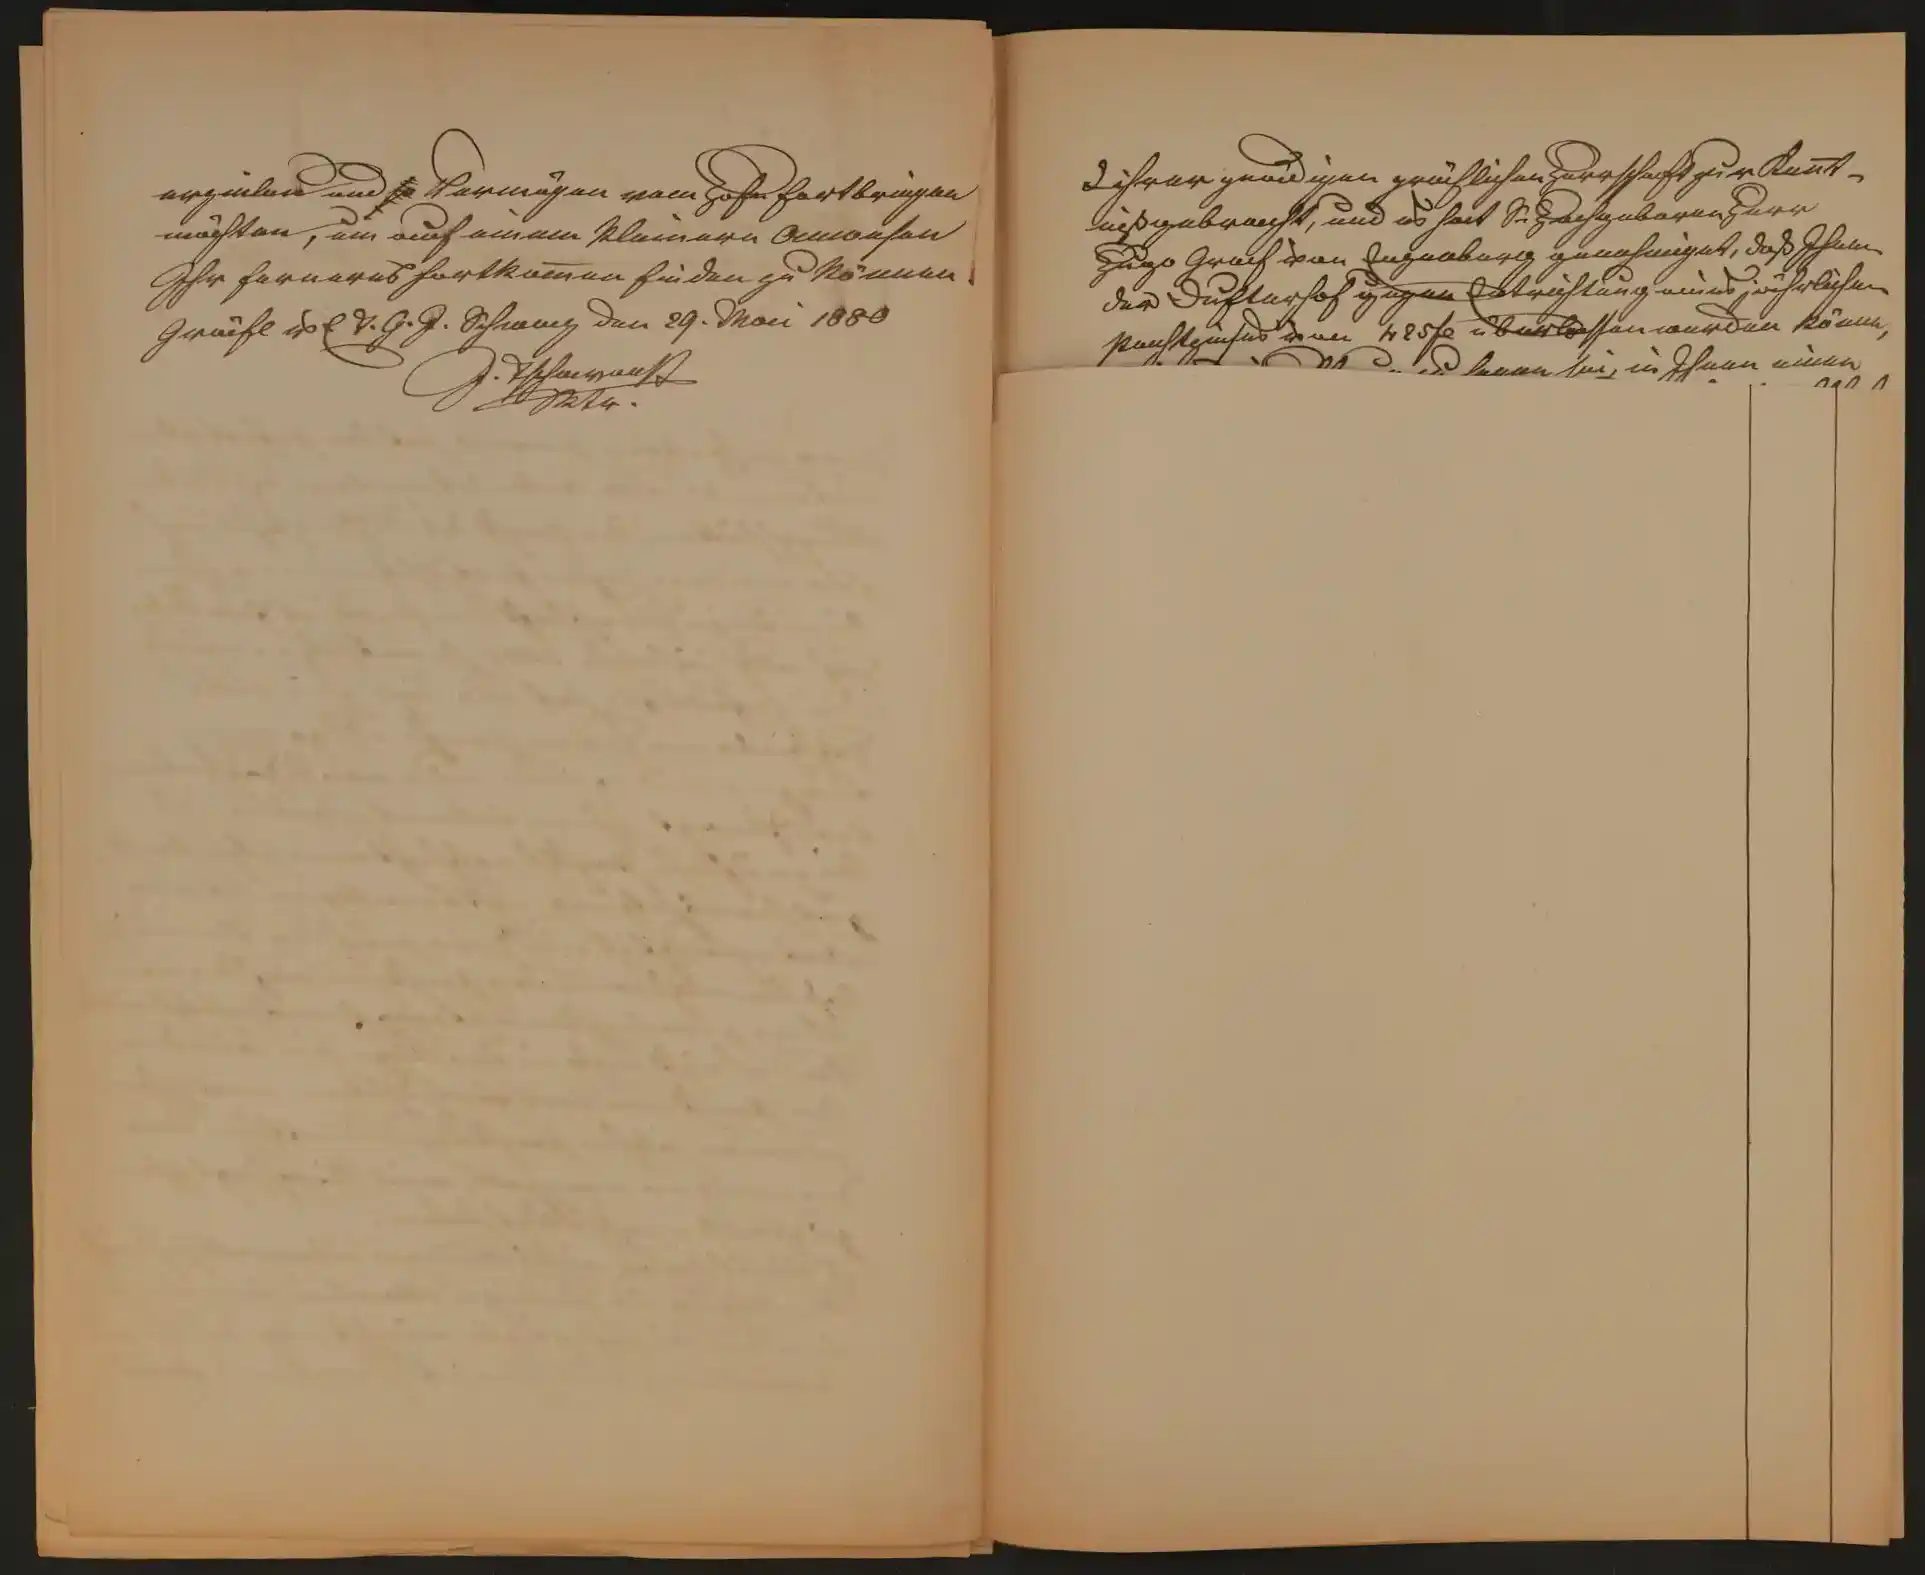 erzielen und so Vermögen vom Hofe fortbringen
möchten, um auf einem kleinern Anwesen
Ihr ferneres Fortkom̅en finden zu können.
Gräfl v. E T. G. J. Schwaz den 29. Mai 1880
J. Tschavon
ihrer gnädigen gräflichen Herrschaft zur Kent̅-
niß gebracht, und es hat Sr. Hochgeboren Herr
Hugo Graf von Enzenberg genehmiget, daß Ihnen
der Dufterhof gegen Entrichtung eines jährlichen
Pachtzinses von 425 f überlassen werden könne,
in Ihnen einen